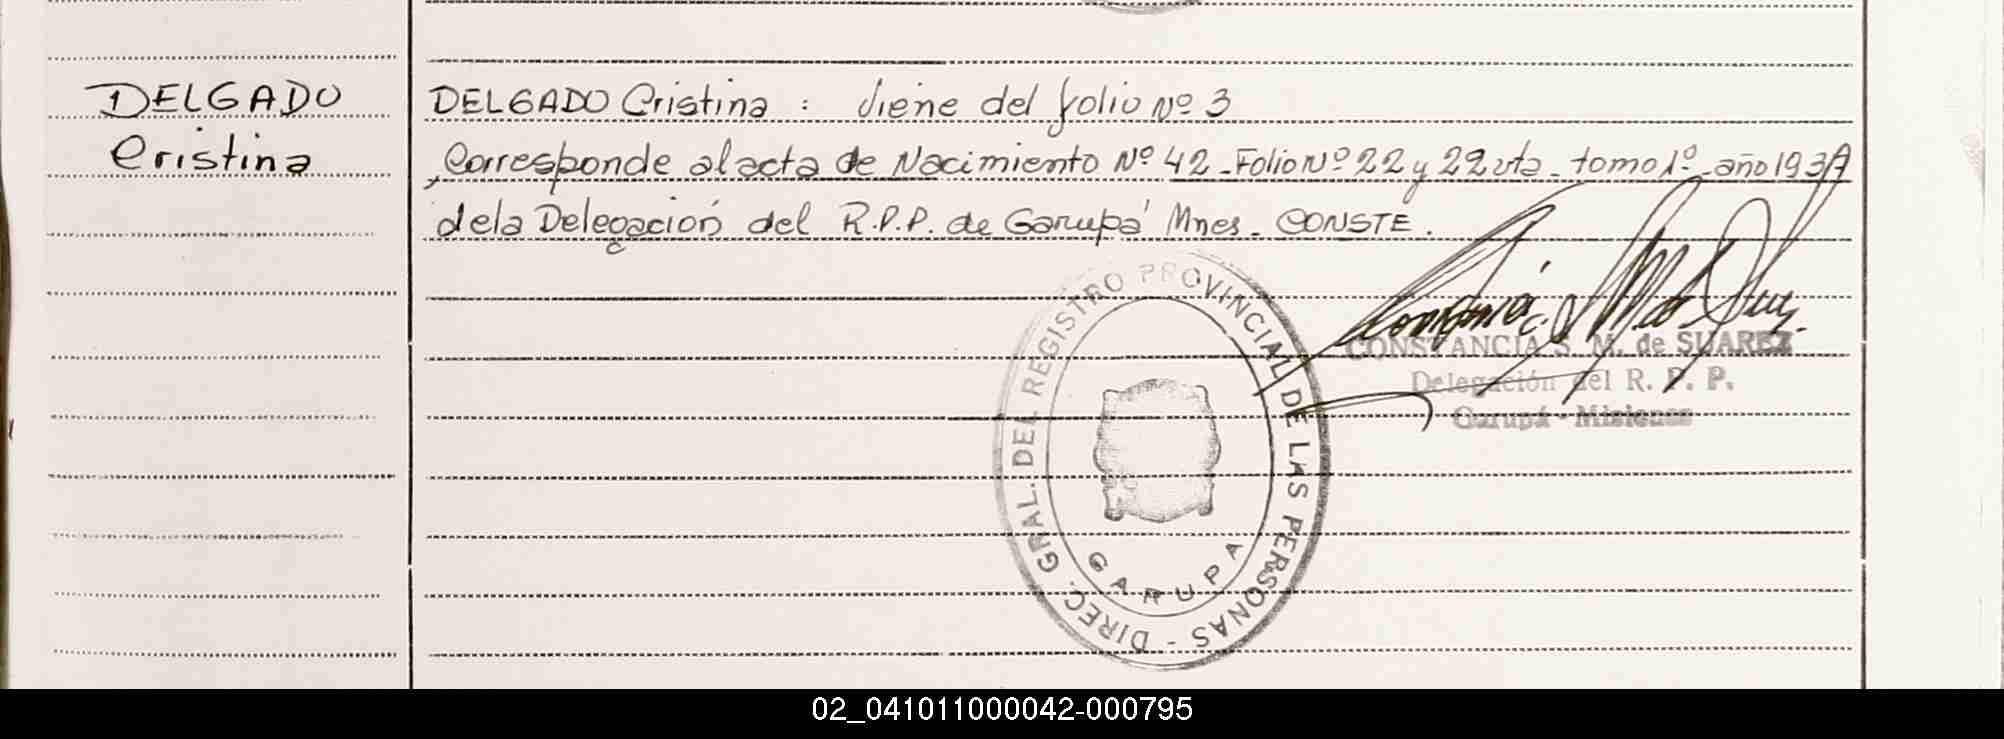 DELGADO
Cristina
DELGADO Cristina : Viene del folio Nº 3
Corresponde al acta de Nacimiento Nº 42 - Folio Nº 22 y 22 vta - tomo 1º - año 193
de la Delegación del R.P.P. de Garupá Mnes - CONSTE.
DIREC. GRAL. DEL REGISTRO PROVINCIAL DE LAS PERSONAS -
GARUPA
CONSTANCIA S. M. de SUAREZ
Delegación del R. P. P.
Garupá - Misiones
02_041011000042-000795